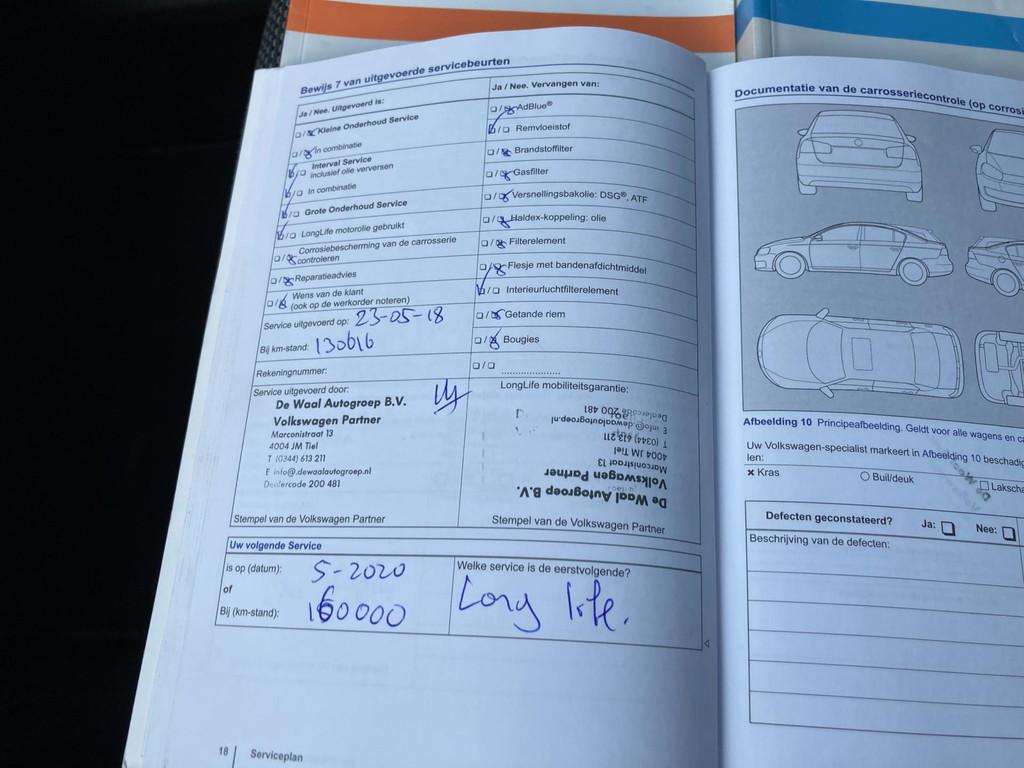 Bewijs 7 van uitgevoerde servicebeurten
Ja / Nee. Uitgevoerd is:
Kleine Onderhoud Service
In combinatie
Interval Service
inclusief olie verversen
In combinatie
Grote Onderhoud Service
LongLife motorolie gebruikt
Corrosiebescherming van de carrosserie
controleren
Reparatieadvies
Wens van de klant
(ook op de werkorder noteren)
Service uitgevoerd op: 23-05-18
Bij km-stand: 130616
Rekeningnummer:
Service uitgevoerd door:
De Waal Autogroep B.V.
Volkswagen Partner
Marconistraat 13
4004 JM Tiel
T (0344) 613 211
E info@dewaalautogroep.nl
Dealercode 200 481
Stempel van de Volkswagen Partner
Ja / Nee. Vervangen van:
AdBlue®
Remvloeistof
Brandstoffilter
Gasfilter
Versnellingsbakolie: DSG®, ATF
Haldex-koppeling: olie
Filterelement
Flesje met bandenafdichtmiddel
Interieurluchtfilterelement
Getande riem
Bougies
LongLife mobiliteitsgarantie:
De Waal Autogroep B.V.
Volkswagen Partner
Marconistraat 13
4004 JM Tiel
T (0344) 613 211
E info@dewaalautogroep.nl
Dealercode 200 481
Stempel van de Volkswagen Partner
Uw volgende Service
is op (datum): 5-2020
of
Bij (km-stand): 160000
Welke service is de eerstvolgende?
Long life.
18 Serviceplan
Documentatie van de carrosseriecontrole (op corrosi
Afbeelding 10 Principeafbeelding. Geldt voor alle wagens en ca
Uw Volkswagen-specialist markeert in Afbeelding 10 beschadig
len:
× Kras
Buil/deuk
Lakscha
Defecten geconstateerd?
Ja:
Nee:
Beschrijving van de defecten: